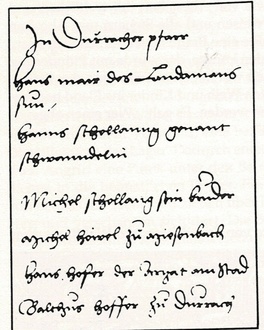 In Durracher pfarr
hans mair des Landamans
sun
hanns schellanng genant
schwanndelin
Michel schellang sein bruder
Michel heivel zu Miesenbach
hans hofer der Artzat am Stad
Balthus hoffer zu Durrach